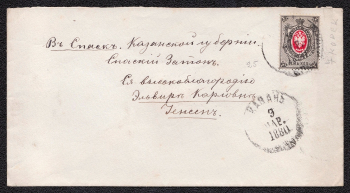 Въ Спаскъ. Казанской губерніи.
Спаскій Затонъ.
Ея высокоблагородію
Эльвирѣ Карловнѣ
Генсенъ.
25
КАЗАНЬ
9
МАР.
1880